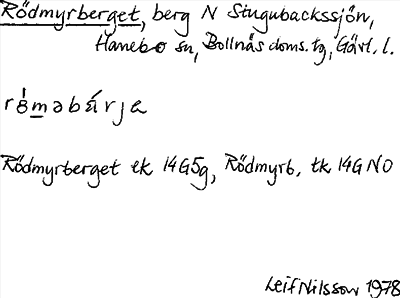 Rödmyrberget, berg N Stugubackssjön,
Hanebo sn, Bollnäs doms. tg, Gävl. l.
Rödmyrberget ek 14G5g, Rödmyrb. tk 14G NO
Leif Nilsson 1978